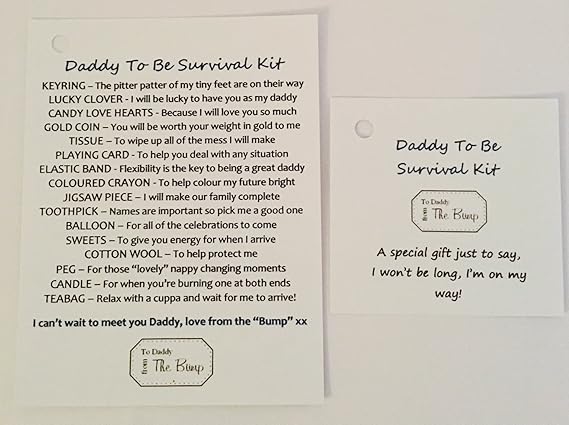 Daddy To Be Survival Kit
KEYRING – The pitter patter of my tiny feet are on their way
LUCKY CLOVER - I will be lucky to have you as my daddy
CANDY LOVE HEARTS - Because I will love you so much
GOLD COIN – You will be worth your weight in gold to me
TISSUE – To wipe up all of the mess I will make
PLAYING CARD - To help you deal with any situation
ELASTIC BAND - Flexibility is the key to being a great daddy
COLOURED CRAYON - To help colour my future bright
JIGSAW PIECE – I will make our family complete
TOOTHPICK – Names are important so pick me a good one
BALLOON – For all of the celebrations to come
SWEETS – To give you energy for when I arrive
COTTON WOOL – To help protect me
PEG – For those “lovely” nappy changing moments
CANDLE – For when you’re burning one at both ends
TEABAG – Relax with a cuppa and wait for me to arrive!
I can’t wait to meet you Daddy, love from the “Bump” xx
To Daddy
from The Bump
Daddy To Be
Survival Kit
To Daddy
from The Bump
A special gift just to say,
I won’t be long, I’m on my
way!